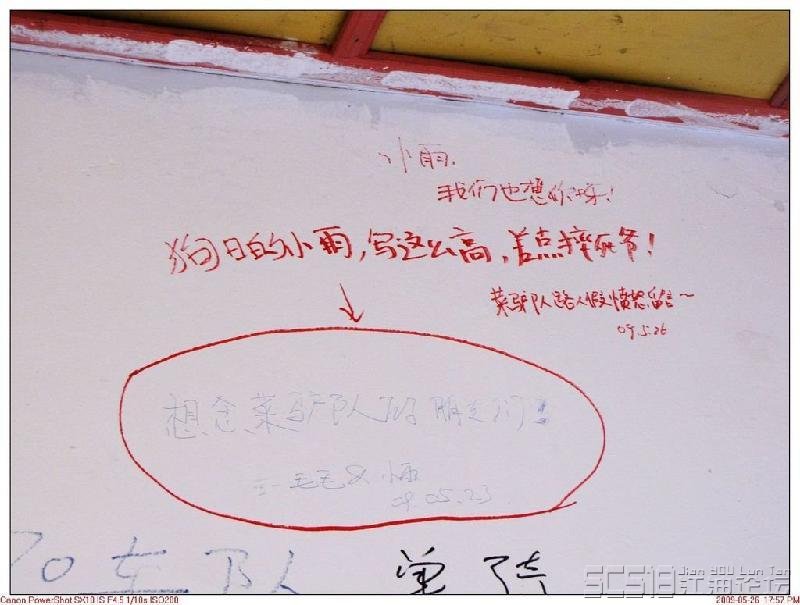 小雨.
我们也想你呀!
狗日的小雨,写这么高,差点摔死爷!
菜驴队路人假愤怒留言~
09.5.26
想念菜驴队的朋友们!
毛毛&小雨
09.05.23
70 车 单骑
SC518江油论坛
Jian YOU Lun Tan
Canon PowerShot SX10 IS F4.5 1/10s ISO200
2009-05-26 17:57 PM